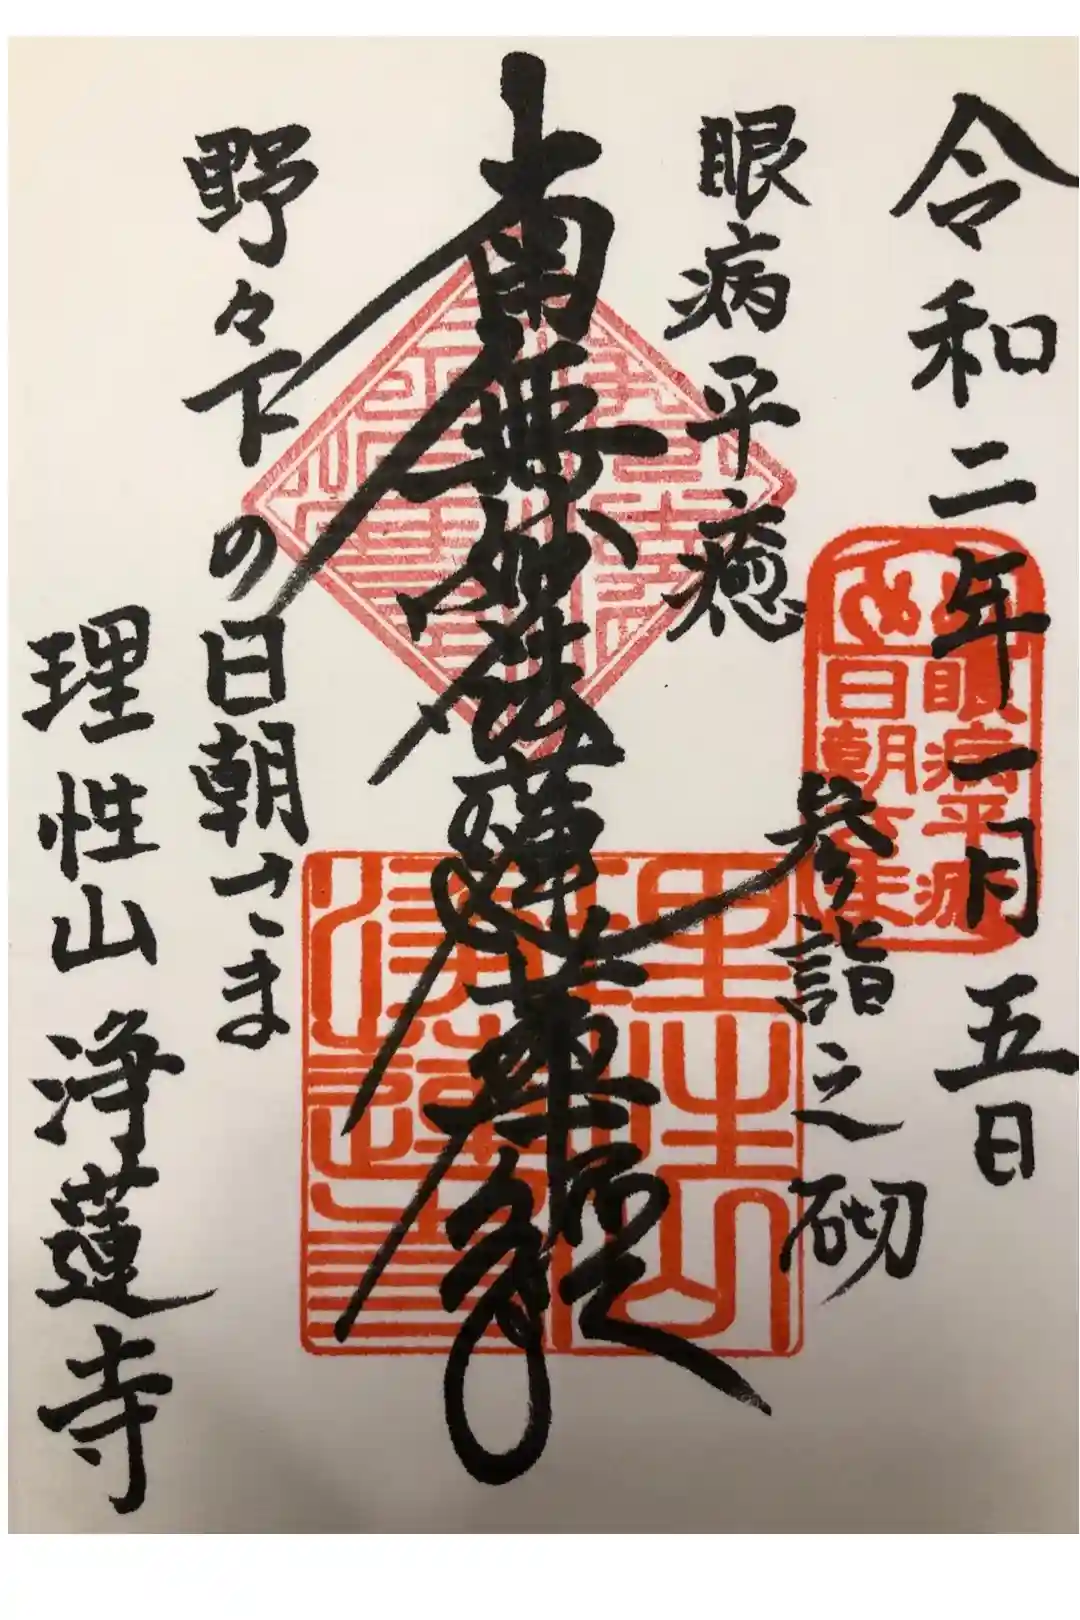 令和二年一月五日
参詣之砌
眼病平癒
南無妙法蓮華経
野々下の日朝さま
理性山 浄蓮寺
眼病平癒
日朝